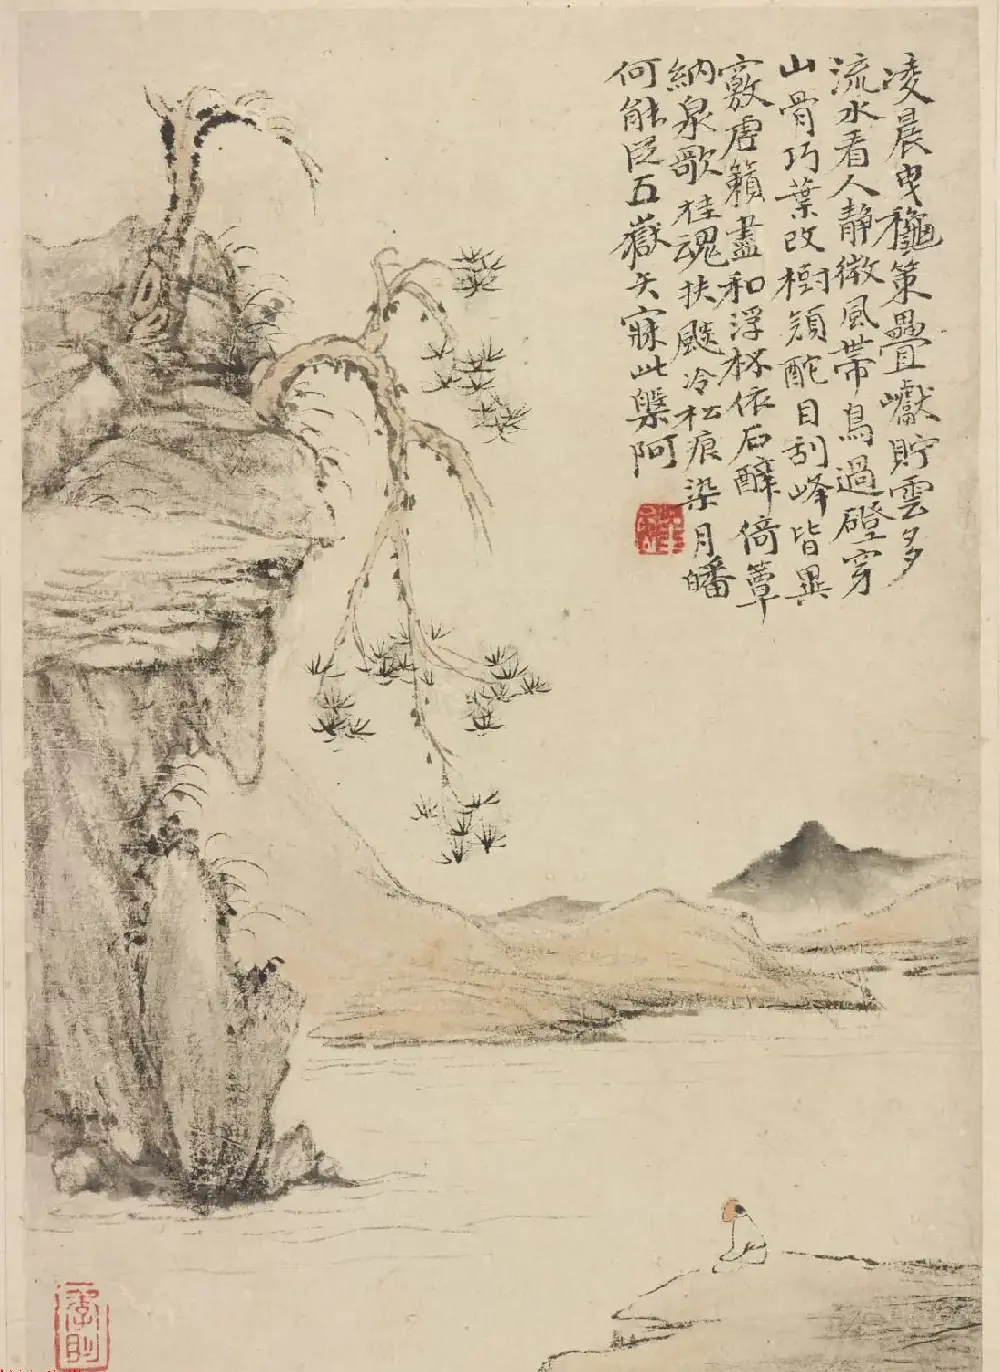 凌晨曳穐策疊巘貯雲多
流水看人静微風帶鳥過磴穿
山骨巧葉改樹頭酡目刮峰皆異
竅虚籟盡和浮杯依石醉倚蕈
納泉歌桂魂扶颼冷松痕染月皤
何能臣五嶽矢寐此槃阿